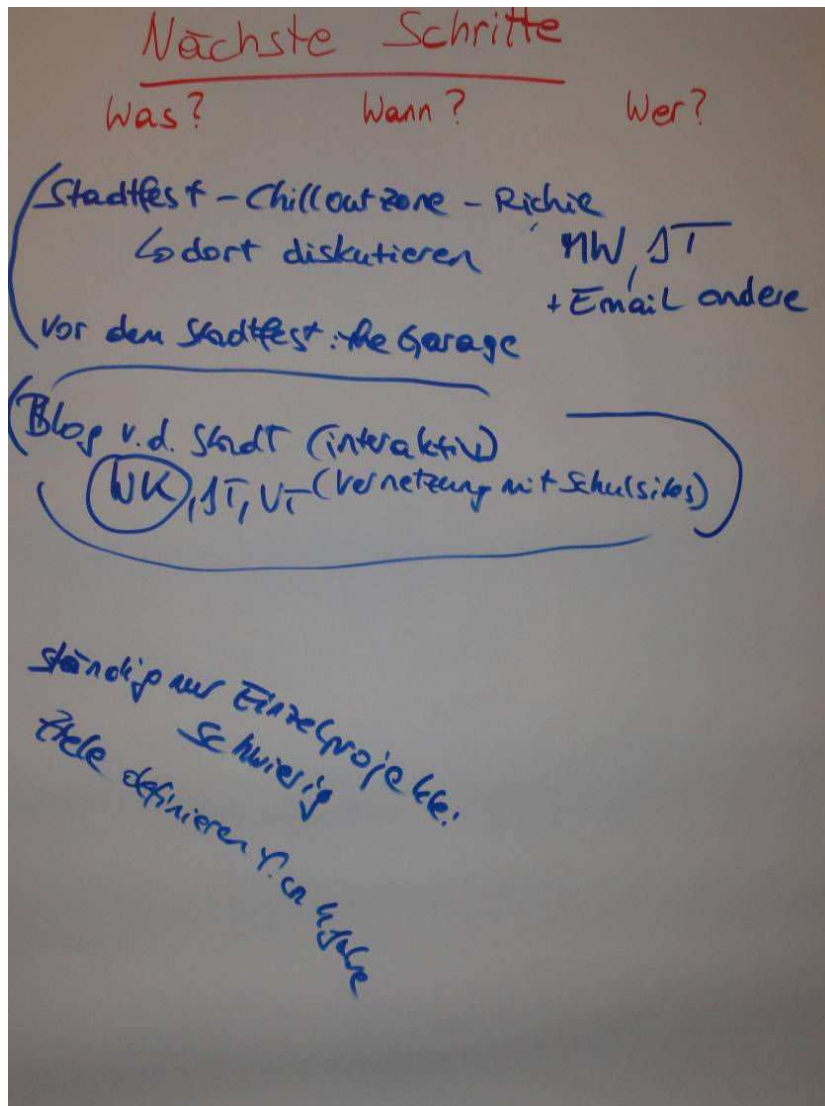 Nächste Schritte
Was? Wann? Wer?
Stadtfest - Chilloutzone - Richie
↳ dort diskutieren MW, JT
+ Email andere
vor dem Stadtfest: the Garage
Blog v.d. Stadt (interaktiv)
WK, JT, VT (Vernetzung mit Schulsites)
ständig nur Einzelprojekte:
schwierig
Ziele definieren 4 Jahre